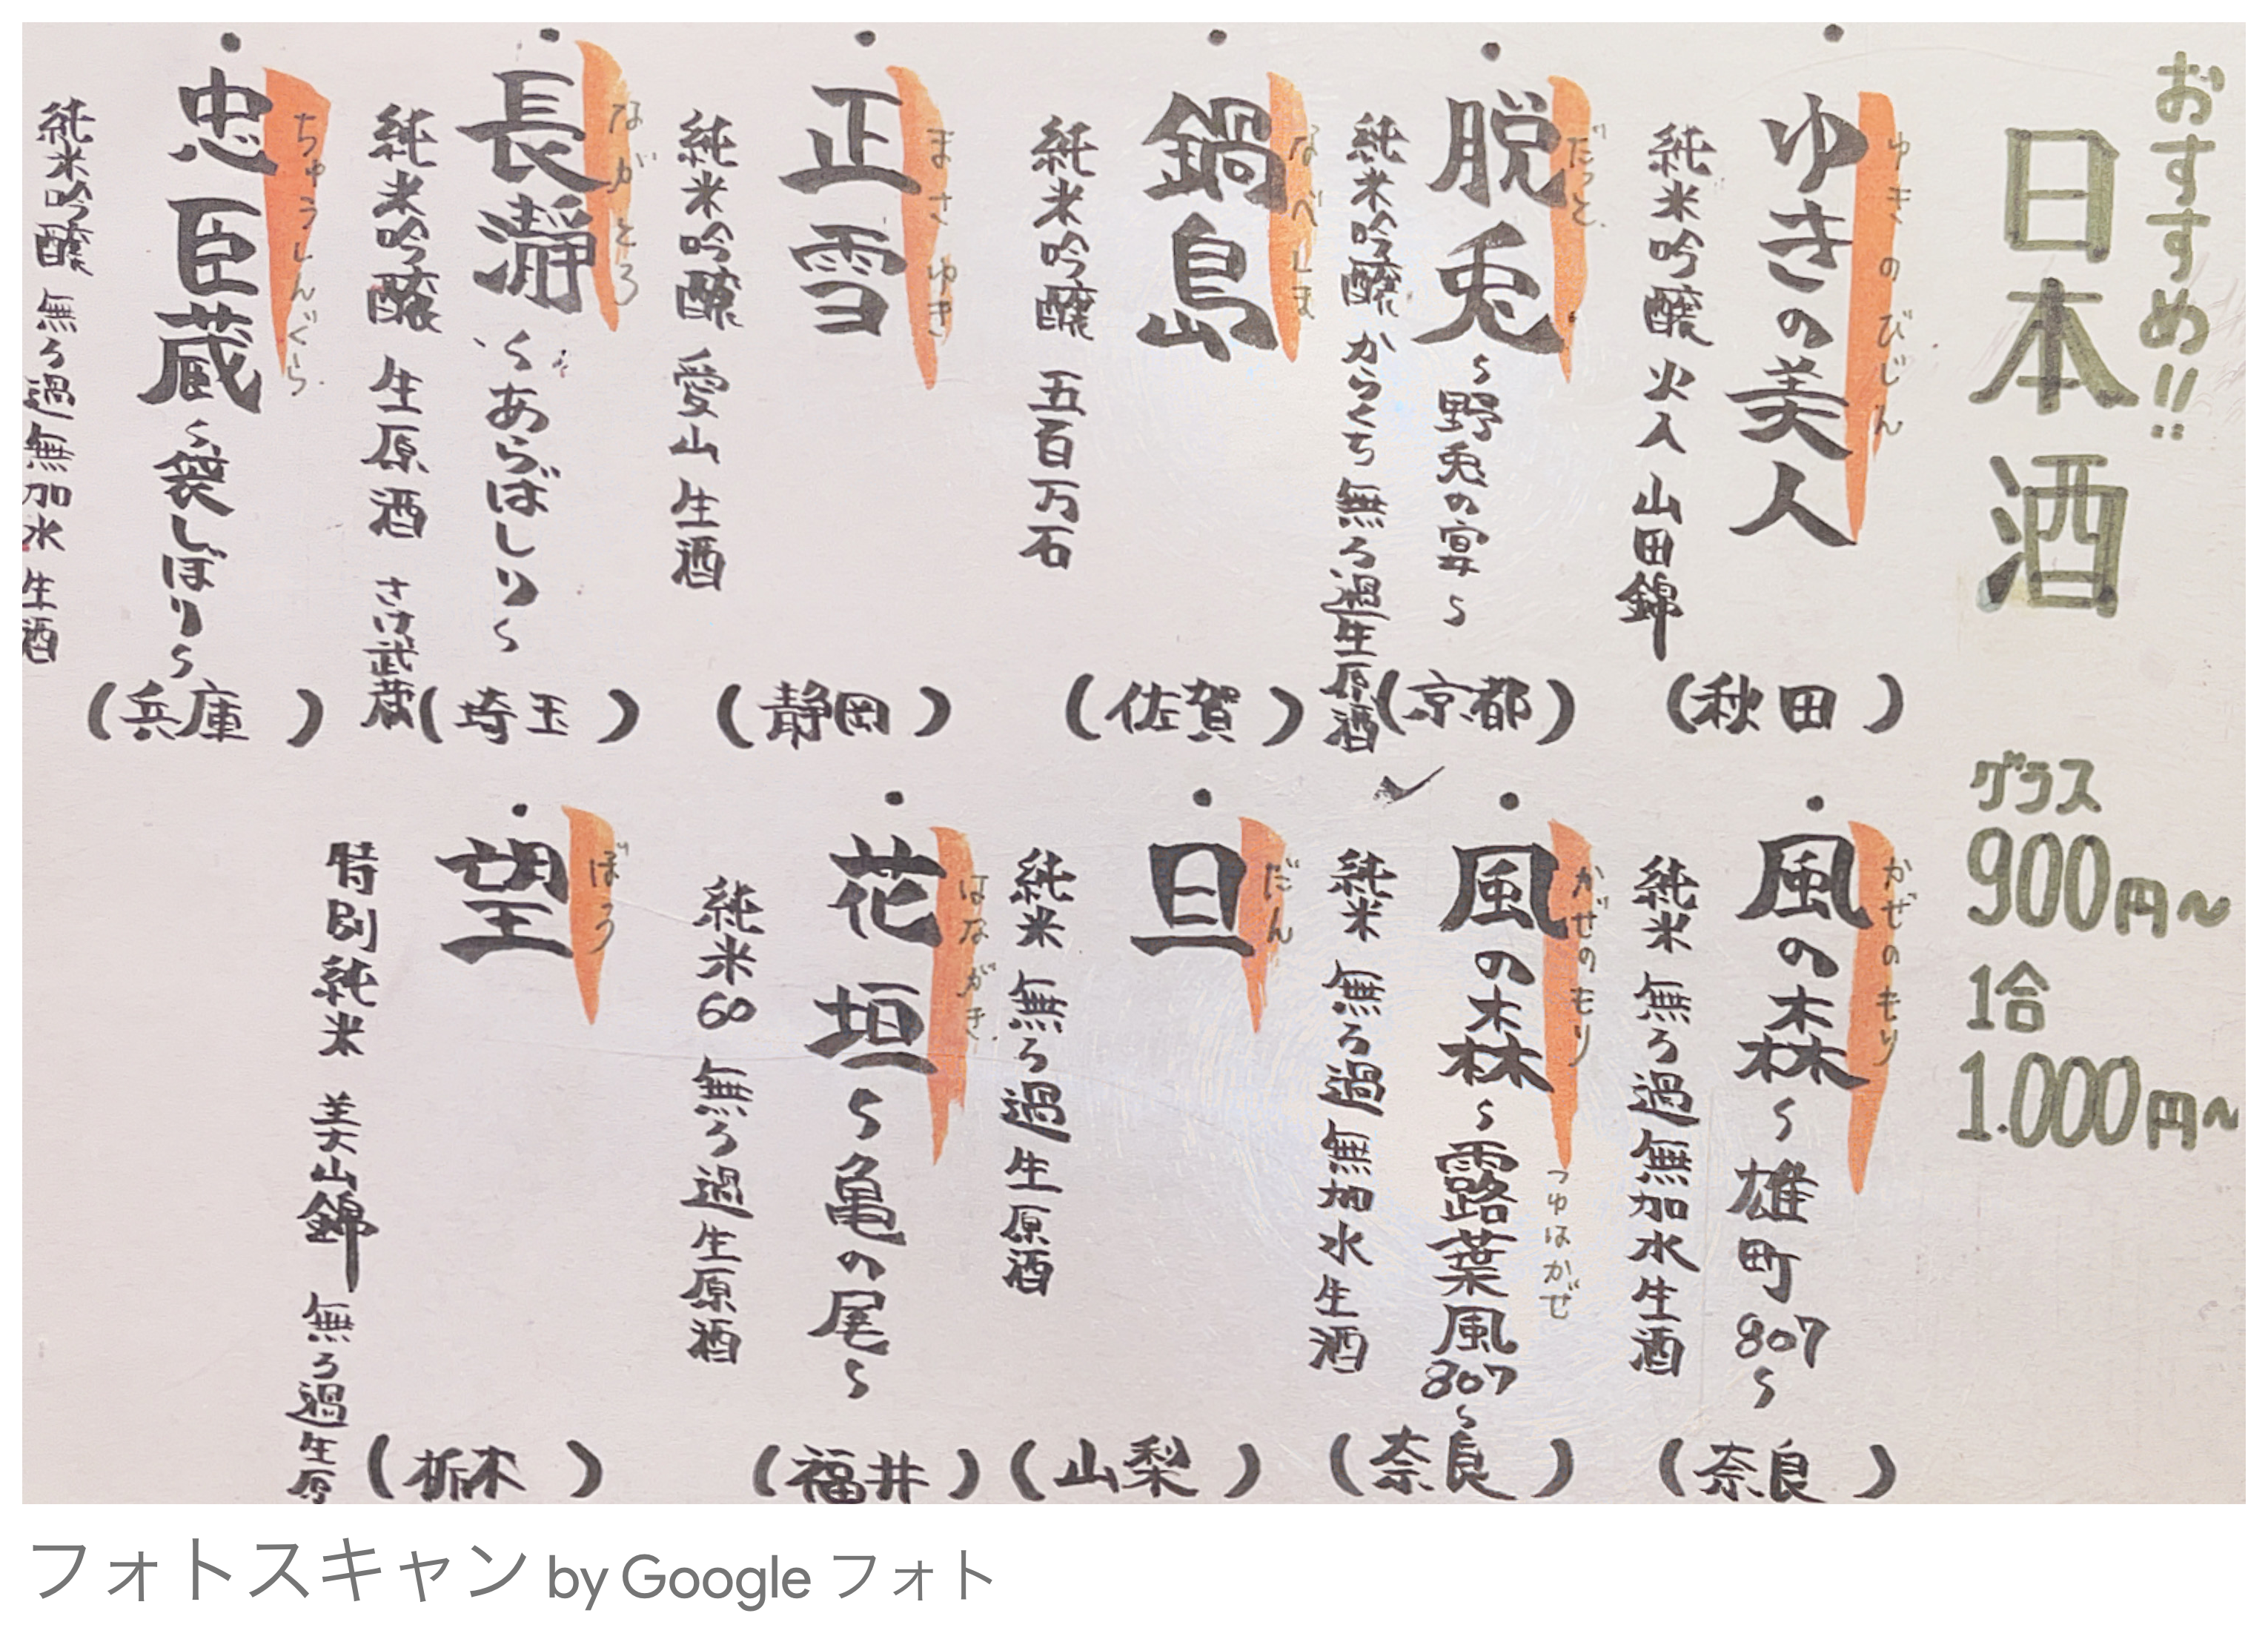 おすすめ!!
日本酒
グラス
900円～
1合
1.000円～
ゆきのびじん
ゆきの美人
純米吟醸 火入 山田錦
(秋田)
だっと
脱兎
～野兎の宴～
純米吟醸 からくち 無ろ過生原酒
(京都)
なべしま
鍋島
純米吟醸 五百万石
(佐賀)
まさゆき
正雪
純米吟醸 愛山 生酒
(静岡)
ながとろ
長瀞
～あらばしり～
純米吟醸 生原酒 さけ武蔵
(埼玉)
ちゅうしんぐら
忠臣蔵
～袋しぼり～
純米吟醸 無ろ過無加水 生酒
(兵庫)
かぜのもり
風の森
～雄町807～
純米 無ろ過無加水生酒
(奈良)
かぜのもり
風の森
～露葉風807～
つゆはかぜ
純米 無ろ過無加水生酒
(奈良)
だん
旦
純米 無ろ過生原酒
(山梨)
はながき
花垣
～亀の尾～
純米60 無ろ過生原酒
(福井)
ぼう
望
特別純米 美山錦 無ろ過生原
(栃木)
フォトスキャン by Google フォト